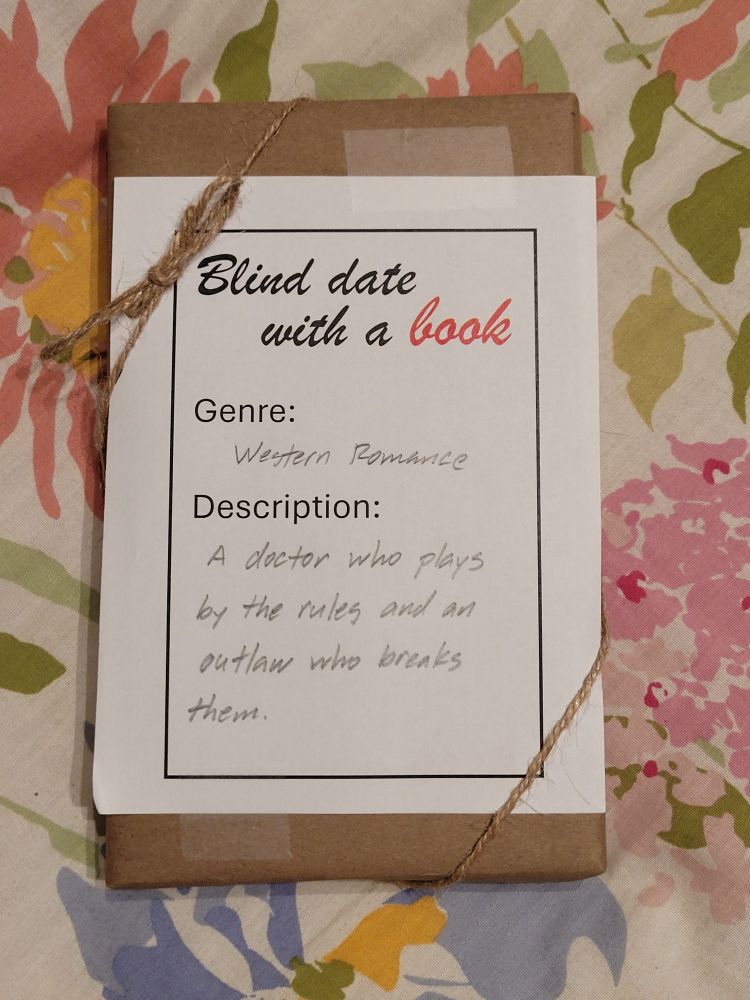 Blind date
with a book
Genre:
Western Romance
Description:
A doctor who plays
by the rules and an
outlaw who breaks
them.